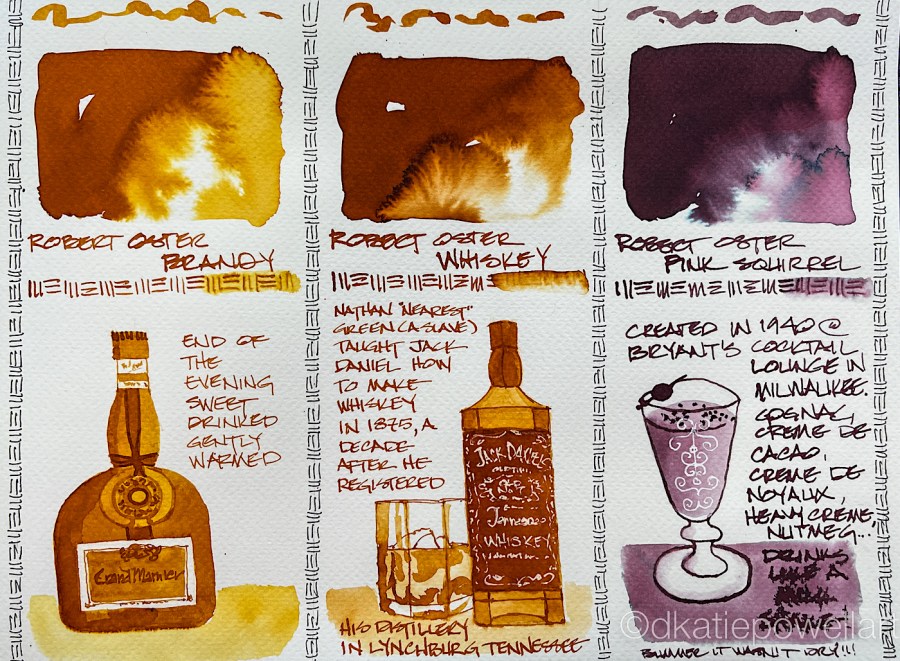 ROBERT OSTER
BRANDY
END OF
THE
EVENING
SWEET
DRINKED
GENTLY
WARMED
Grand Marnier
ROBERT OSTER
WHISKEY
NATHAN "NEAREST"
GREEN (A SLAVE)
TAUGHT JACK
DANIEL HOW
TO MAKE
WHISKEY
IN 1875, A
DECADE
AFTER HE
REGISTERED
JACK DANIEL'S
Tennessee
WHISKEY
HIS DISTILLERY
IN LYNCHBURG TENNESSEE
ROBERT OSTER
PINK SQUIRREL
CREATED IN 1940 @
BRYANT'S COCKTAIL
LOUNGE IN
MILWAUKEE.
COGNAC,
CREME DE
CACAO,
CREME DE
NOYAUX,
HEAVY CREME,
NUTMEG...
DRINKS
LIKE A
BUMMER IT WASN'T DRY!!!
©dkatiepowellart